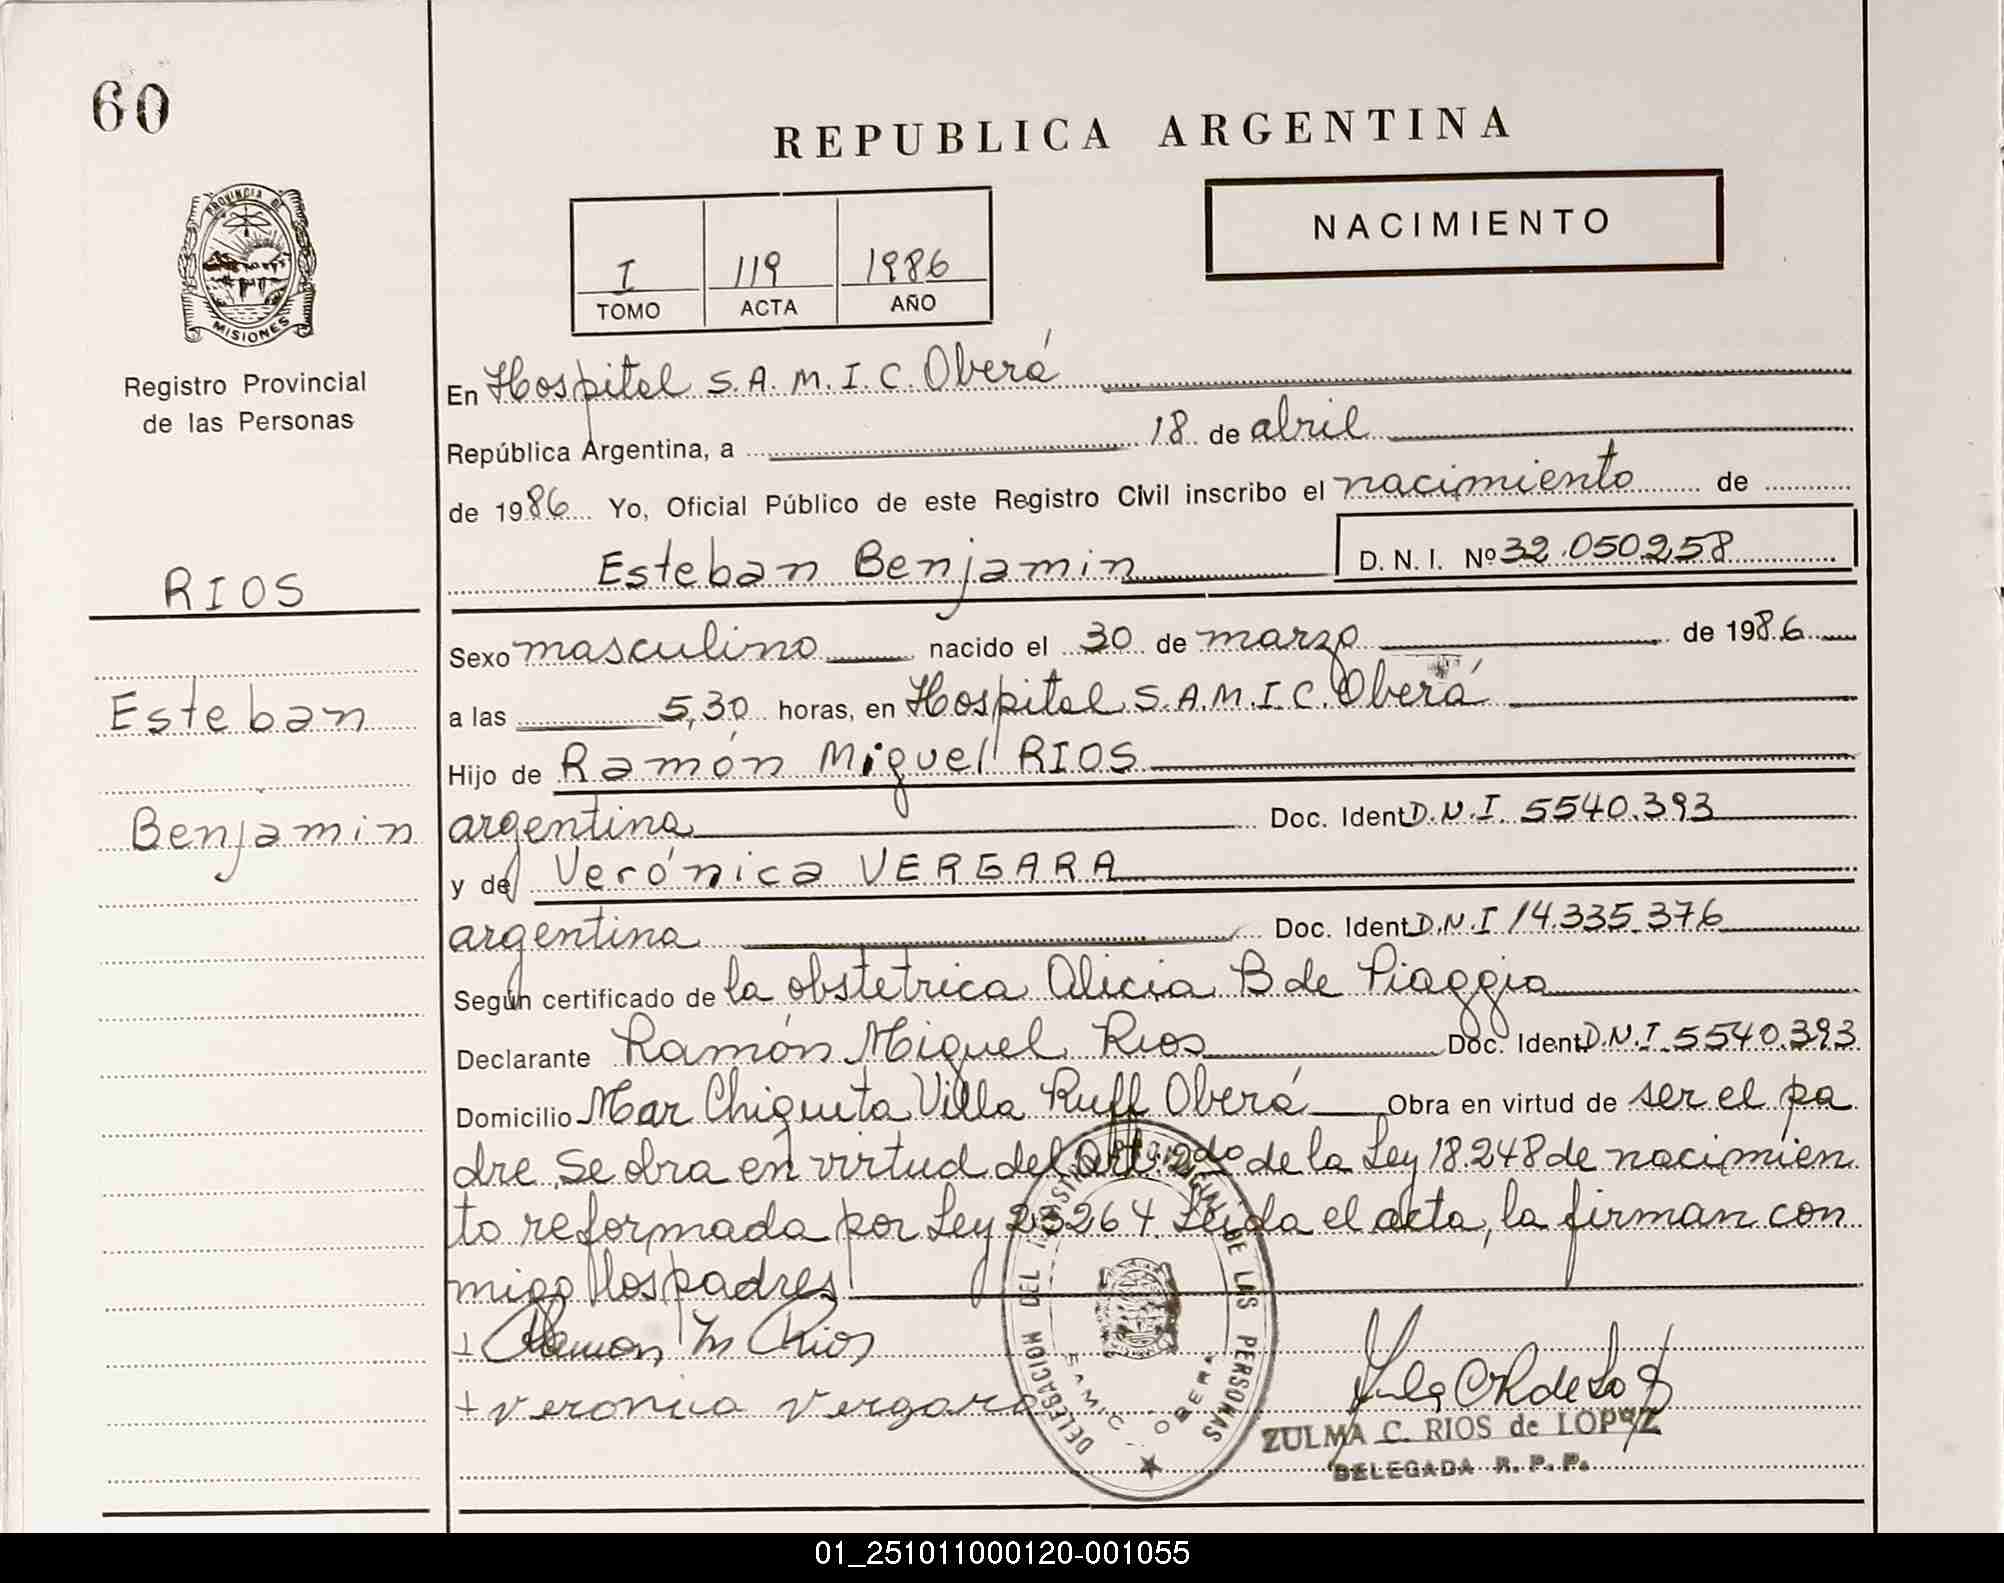 60
REPUBLICA ARGENTINA
NACIMIENTO
I 119 1986
TOMO ACTA AÑO
PROVINCIA DE
MISIONES
Registro Provincial
de las Personas
RIOS
Esteban
Benjamin
En Hospital S.A.M.I.C. Oberá
República Argentina, a 18 de abril
de 1986 Yo, Oficial Público de este Registro Civil inscribo el nacimiento de
Esteban Benjamin D.N.I. Nº 32.050.258
Sexo masculino nacido el 30 de marzo de 1986
a las 5,30 horas, en Hospital S.A.M.I.C. Oberá
Hijo de Ramón Miguel RIOS
argentina Doc. Ident D.N.I. 5540.393
y de Verónica VERGARA
argentina Doc. Ident D.N.I 14.335.376
Según certificado de la obstetrica Alicia B de Piaggio
Declarante Ramón Miguel Rios Doc. Ident D.N.I. 5540.393
Domicilio Mar Chiquita Villa Ruff Oberá Obra en virtud de ser el pa
dre. Se obra en virtud del Art. 2do de la Ley 18.248 de nacimien
to reformada por Ley 23264. Leída el acta, la firman con
migo los padres
+ Ramon M Rios
+ Veronica Vergara
DELEGACION DEL REGISTRO PROVINCIAL DE LAS PERSONAS
SAMIC - OBERA
ZULMA C. RIOS de LOPEZ
DELEGADA R. P. P.
01_251011000120-001055